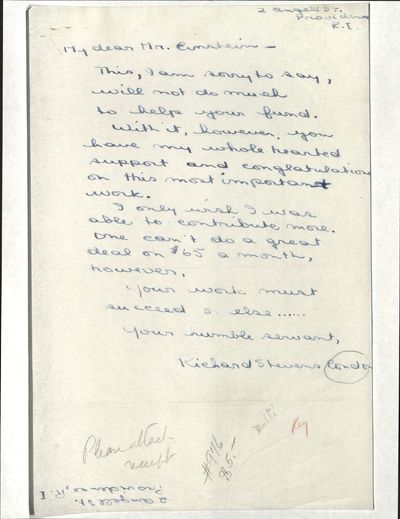 2 Angell St.
Providence
R.I.
My dear Mr. Einstein –
This, I am sorry to say,
will not do much
to help your fund.
With it, however, you
have my whole hearted
support and congratulations
on this most important
work.
I only wish I was
able to contribute more.
One can't do a great
deal on $65 a month,
however.
Your work must
succeed or else......
Your humble servant,
Richard Stevens Condon
Please attach
receipt
#976
$5.–
Reg
2 Angell St.
Providence, R.I.